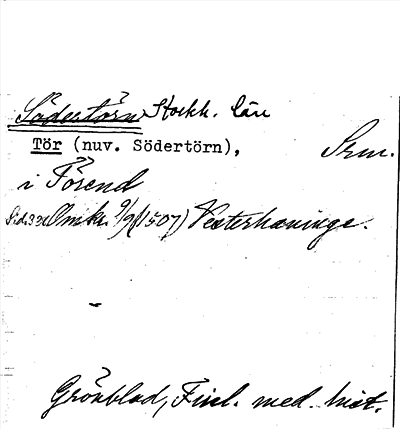 Södertörn Stockh. län
Tör (nuv. Södertörn), Srm.
i Törend
Sid. 331 Omkr. 9/9 (1507) Vesterhaninge.
Grönblad, Finl. med. hist.